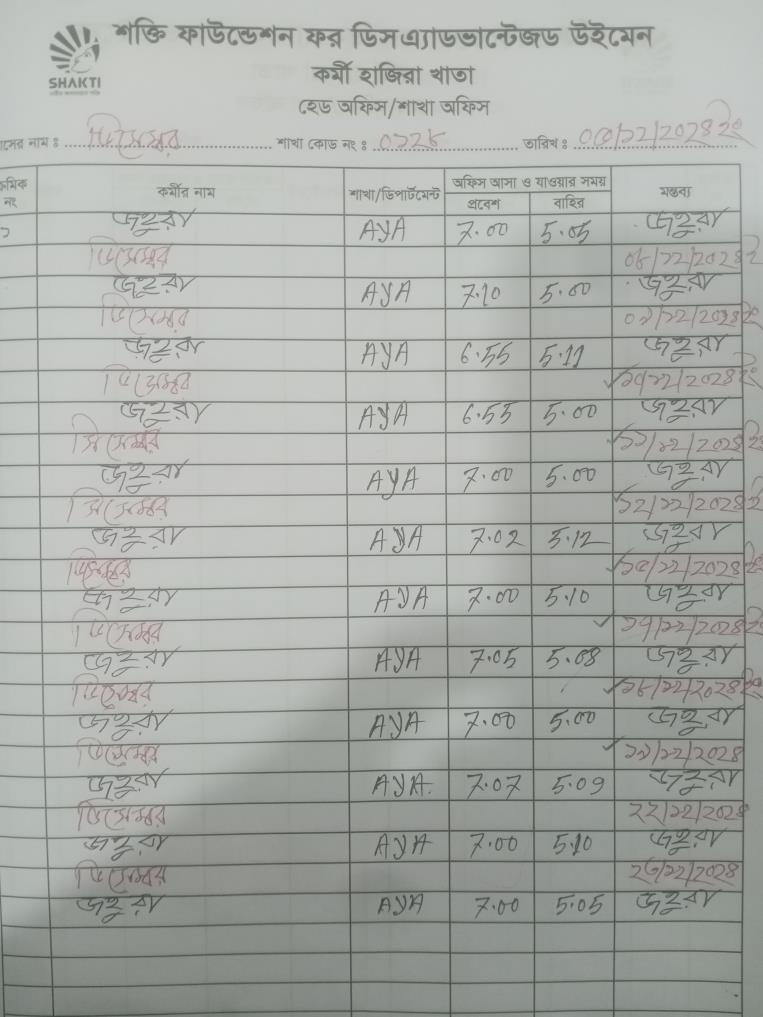 শক্তি ফাউন্ডেশন ফর ডিসএ্যাডভান্টেজড উইমেন
SHAKTI
কর্মী হাজিরা খাতা
হেড অফিস/শাখা অফিস
াসের নাম : ডিসেম্বর শাখা কোড নং : ০১২৮ তারিখ : /১২/২০২৪ ইং
ক্রমিক নং কর্মীর নাম শাখা/ডিপার্টমেন্ট অফিস আসা ও যাওয়ার সময় মন্তব্য
প্রবেশ বাহির
১ জহুরা AYA 7.00 5.05 জহুরা
ডিসেম্বর ০৮/১২/২০২৪ ইং
জহুরা AYA 7.10 5.00 জহুরা
ডিসেম্বর ০৯/১২/২০২৪ ইং
জহুরা AYA 6.55 5.11 জহুরা
ডিসেম্বর ১০/১২/২০২৪ ইং
জহুরা AYA 6.55 5.00 জহুরা
ডিসেম্বর ১১/১২/২০২৪ ইং
জহুরা AYA 7.00 5.00 জহুরা
ডিসেম্বর ১২/১২/২০২৪ ইং
জহুরা AYA 7.02 5.12 জহুরা
ডিসেম্বর ১৫/১২/২০২৪ ইং
জহুরা AYA 7.00 5.10 জহুরা
ডিসেম্বর ১৭/১২/২০২৪ ইং
জহুরা AYA 7.05 5.08 জহুরা
ডিসেম্বর ১৮/১২/২০২৪ ইং
জহুরা AYA 7.00 5.00 জহুরা
ডিসেম্বর ১৯/১২/২০২৪
জহুরা AYA 7.07 5.09 জহুরা
ডিসেম্বর ২২/১২/২০২৪
জহুরা AYA 7.00 5.10 জহুরা
ডিসেম্বর ২৩/১২/২০২৪
জহুরা AYA 7.00 5.05 জহুরা